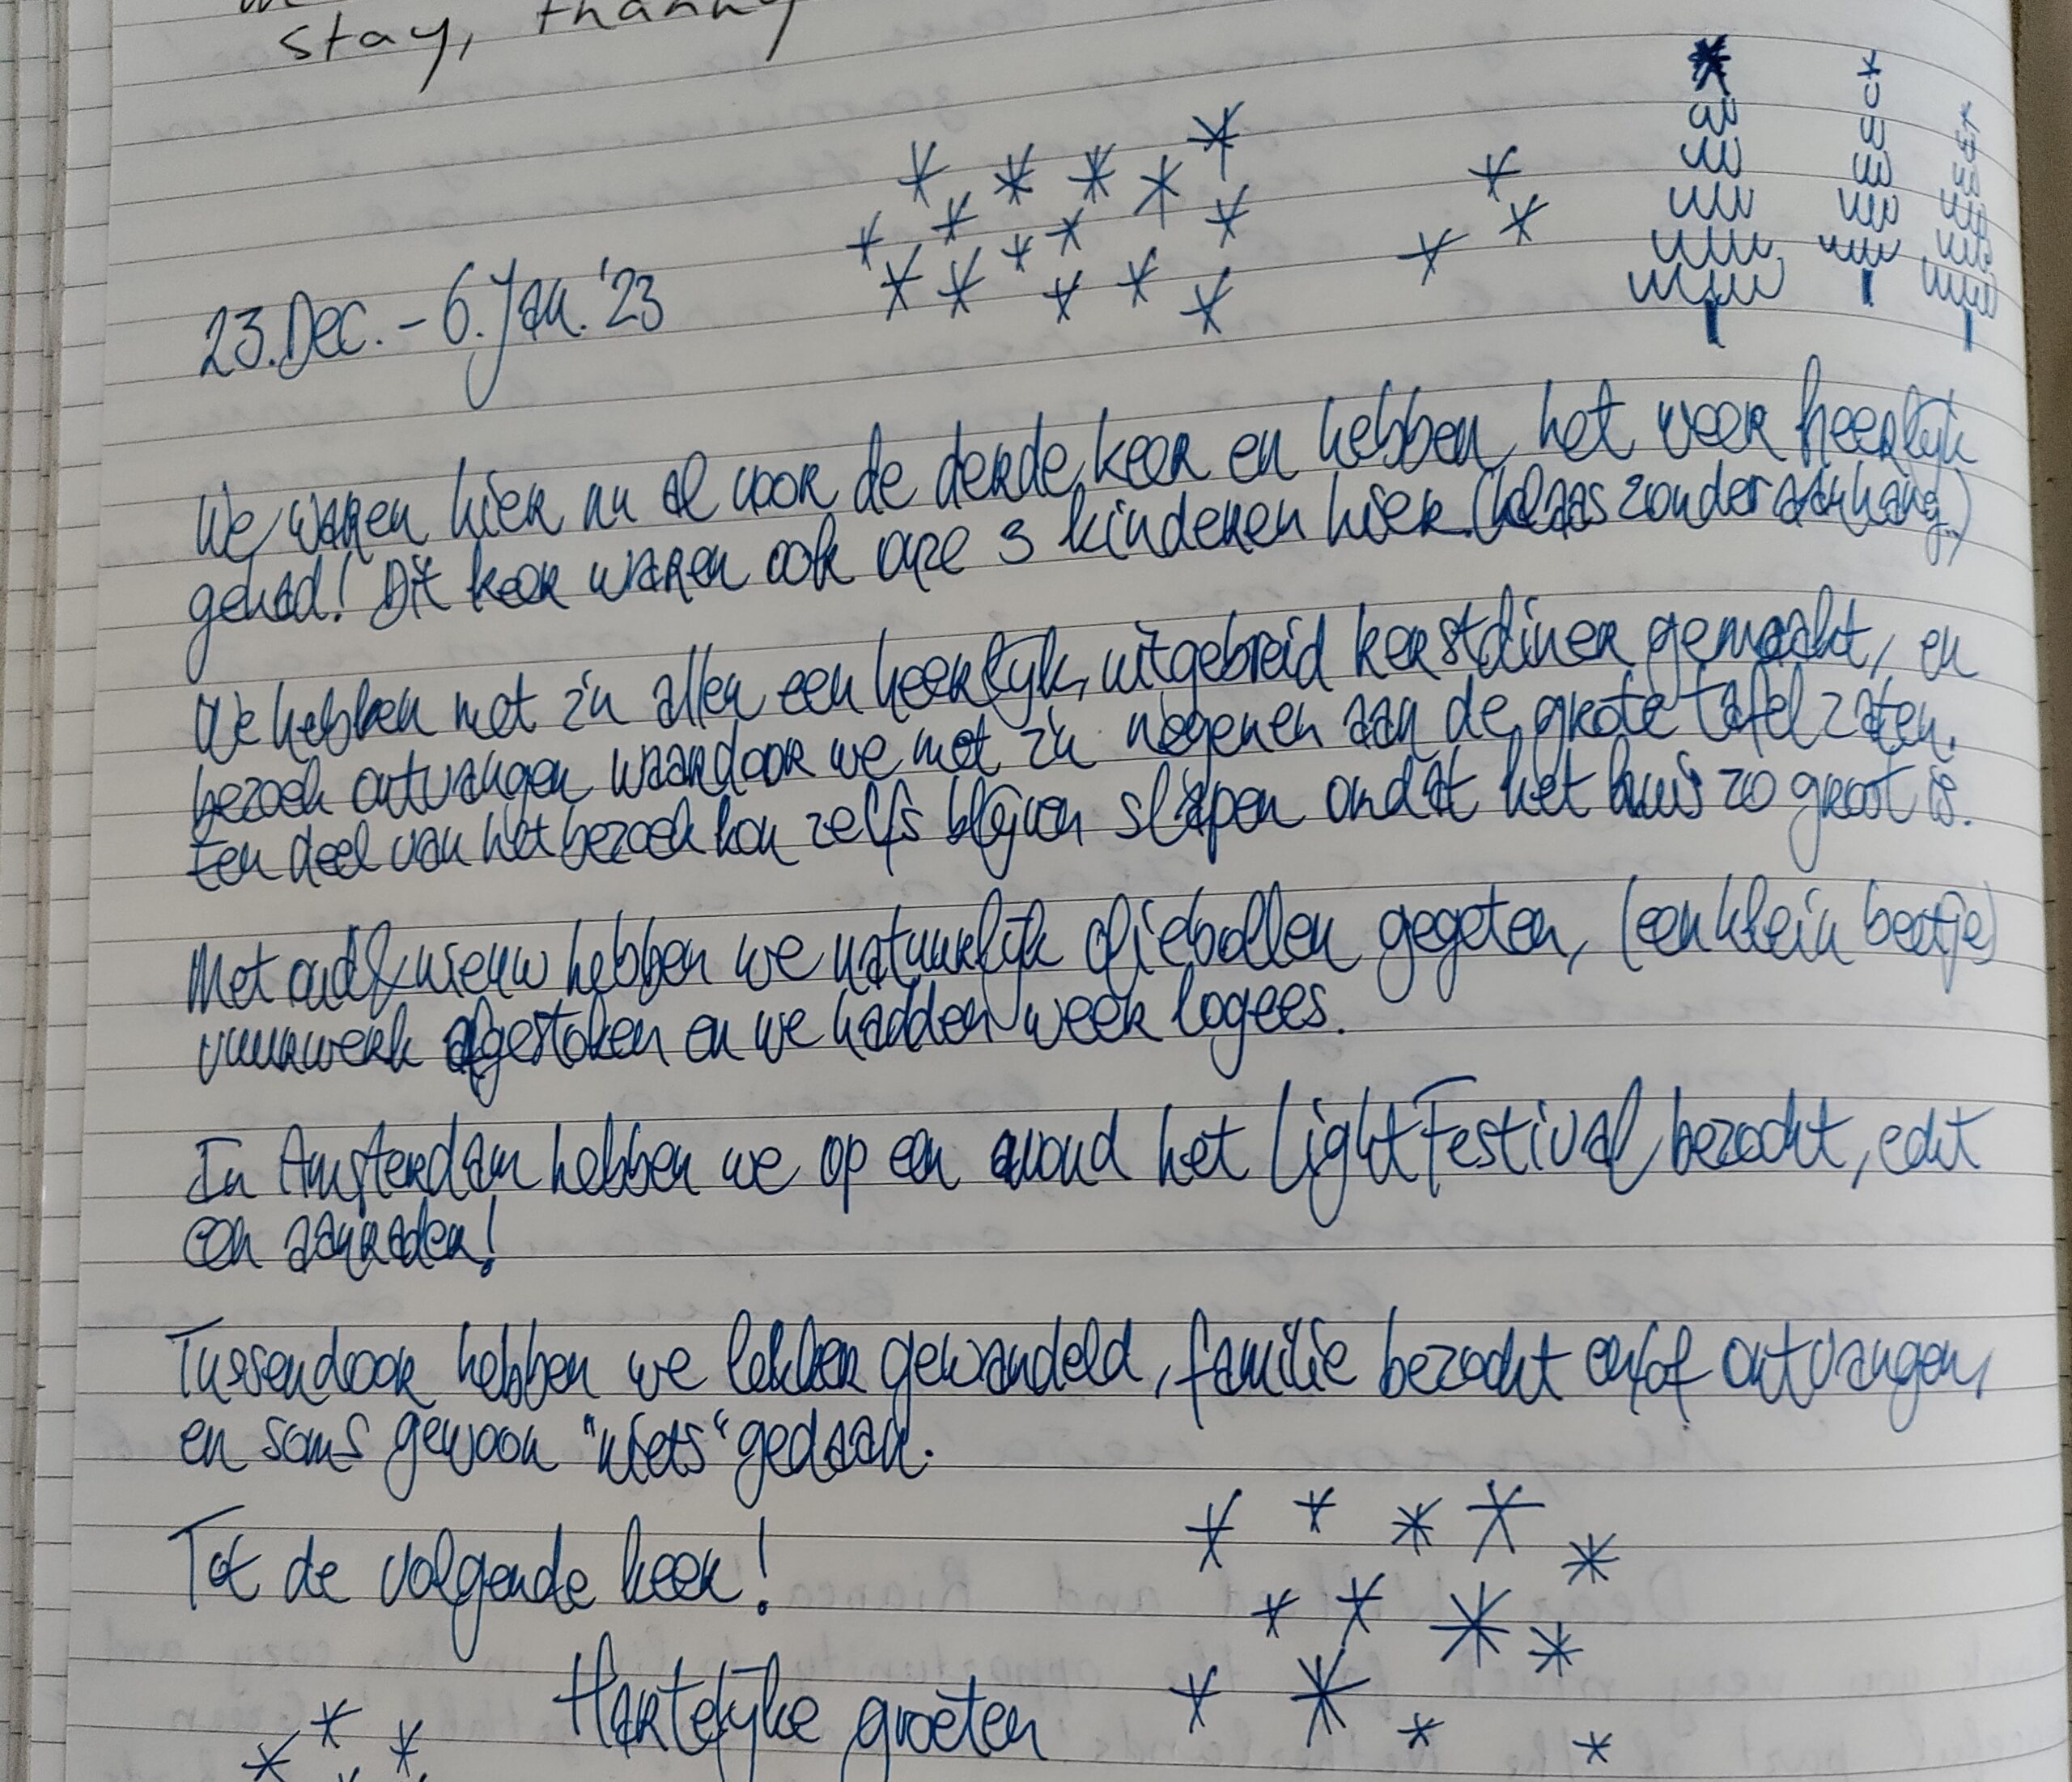 stay,
23. Dec. - 6. Jan. '23
We waren hier nu al voor de derde keer en hebben het weer heerlijk
gehad! Dit keer waren ook onze 3 kinderen hier. (helaas zonder aanhang.)
We hebben met z'n allen een heerlijk, uitgebreid kerstdiner gemaakt, en
bezoek ontvangen waardoor we met z'n negenen aan de grote tafel zaten.
Een deel van het bezoek kon zelfs blijven slapen omdat het huis zo groot is.
Met oud & nieuw hebben we natuurlijk oliebollen gegeten, (een klein beetje)
vuurwerk afgestoken en we hadden weer logees.
In Amsterdam hebben we op een avond het Light Festival bezocht, echt
een aanrader!
Tussendoor hebben we lekker gewandeld, familie bezocht en/of ontvangen,
en soms gewoon "niets" gedaan.
Tot de volgende keer!
Hartelijke groeten